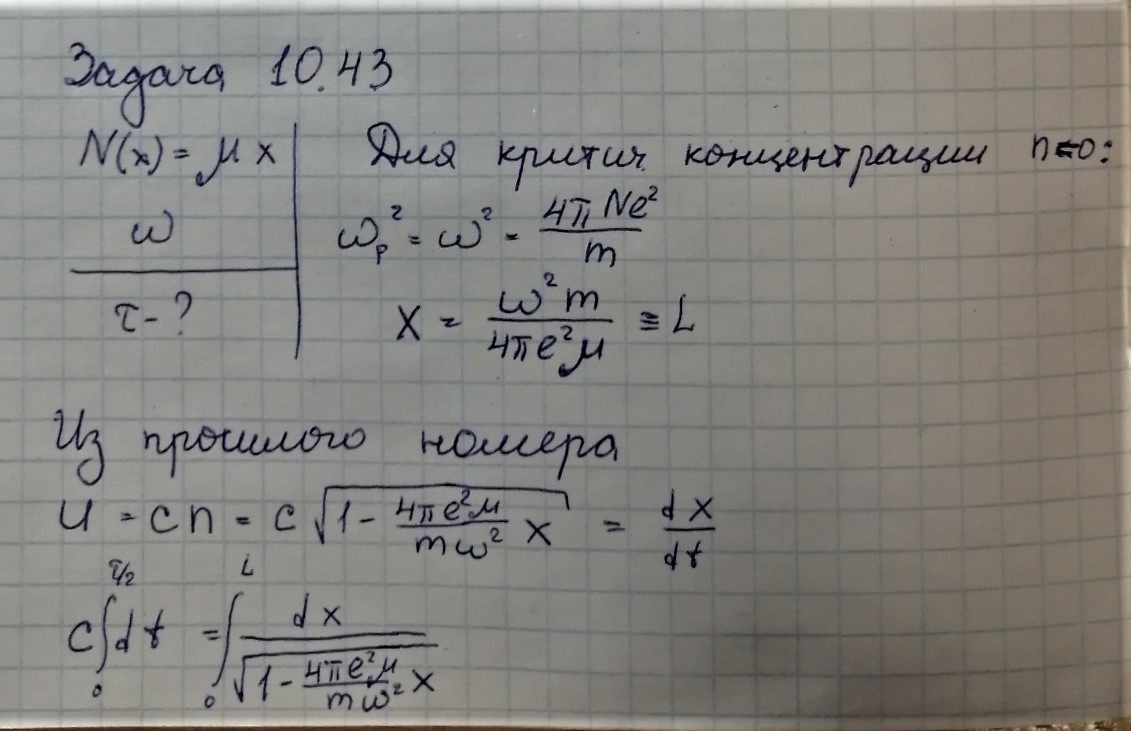 Задача 10.43
N(x) = μ x
ω
τ - ?
Для критич. концентрации n=0:
ω_p² = ω² = 4π Ne² / m
X = ω² m / 4π e² μ ≡ L
Из прошлого номера
U = c n = c √(1 - 4π e² μ / m ω² x) = dx / dt
c ∫₀^{τ/2} dt = ∫₀^L dx / √(1 - 4π e² μ / m ω² x)